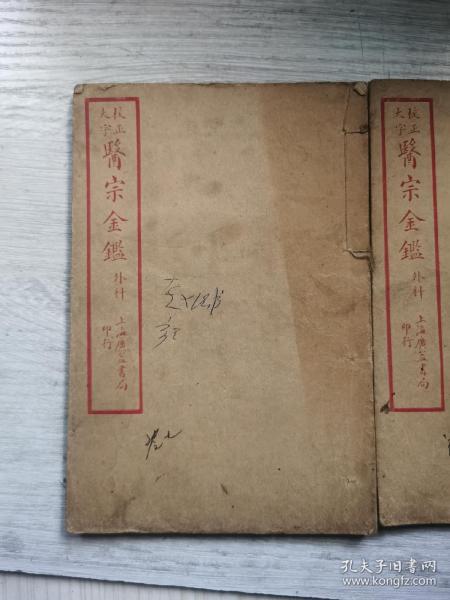 校正
大字
醫宗金鑑
外科
上海廣益書局
印行
校正
大字
醫宗金鑑
外科
上海廣益書局
印行
孔夫子旧书网
www.kongfz.com